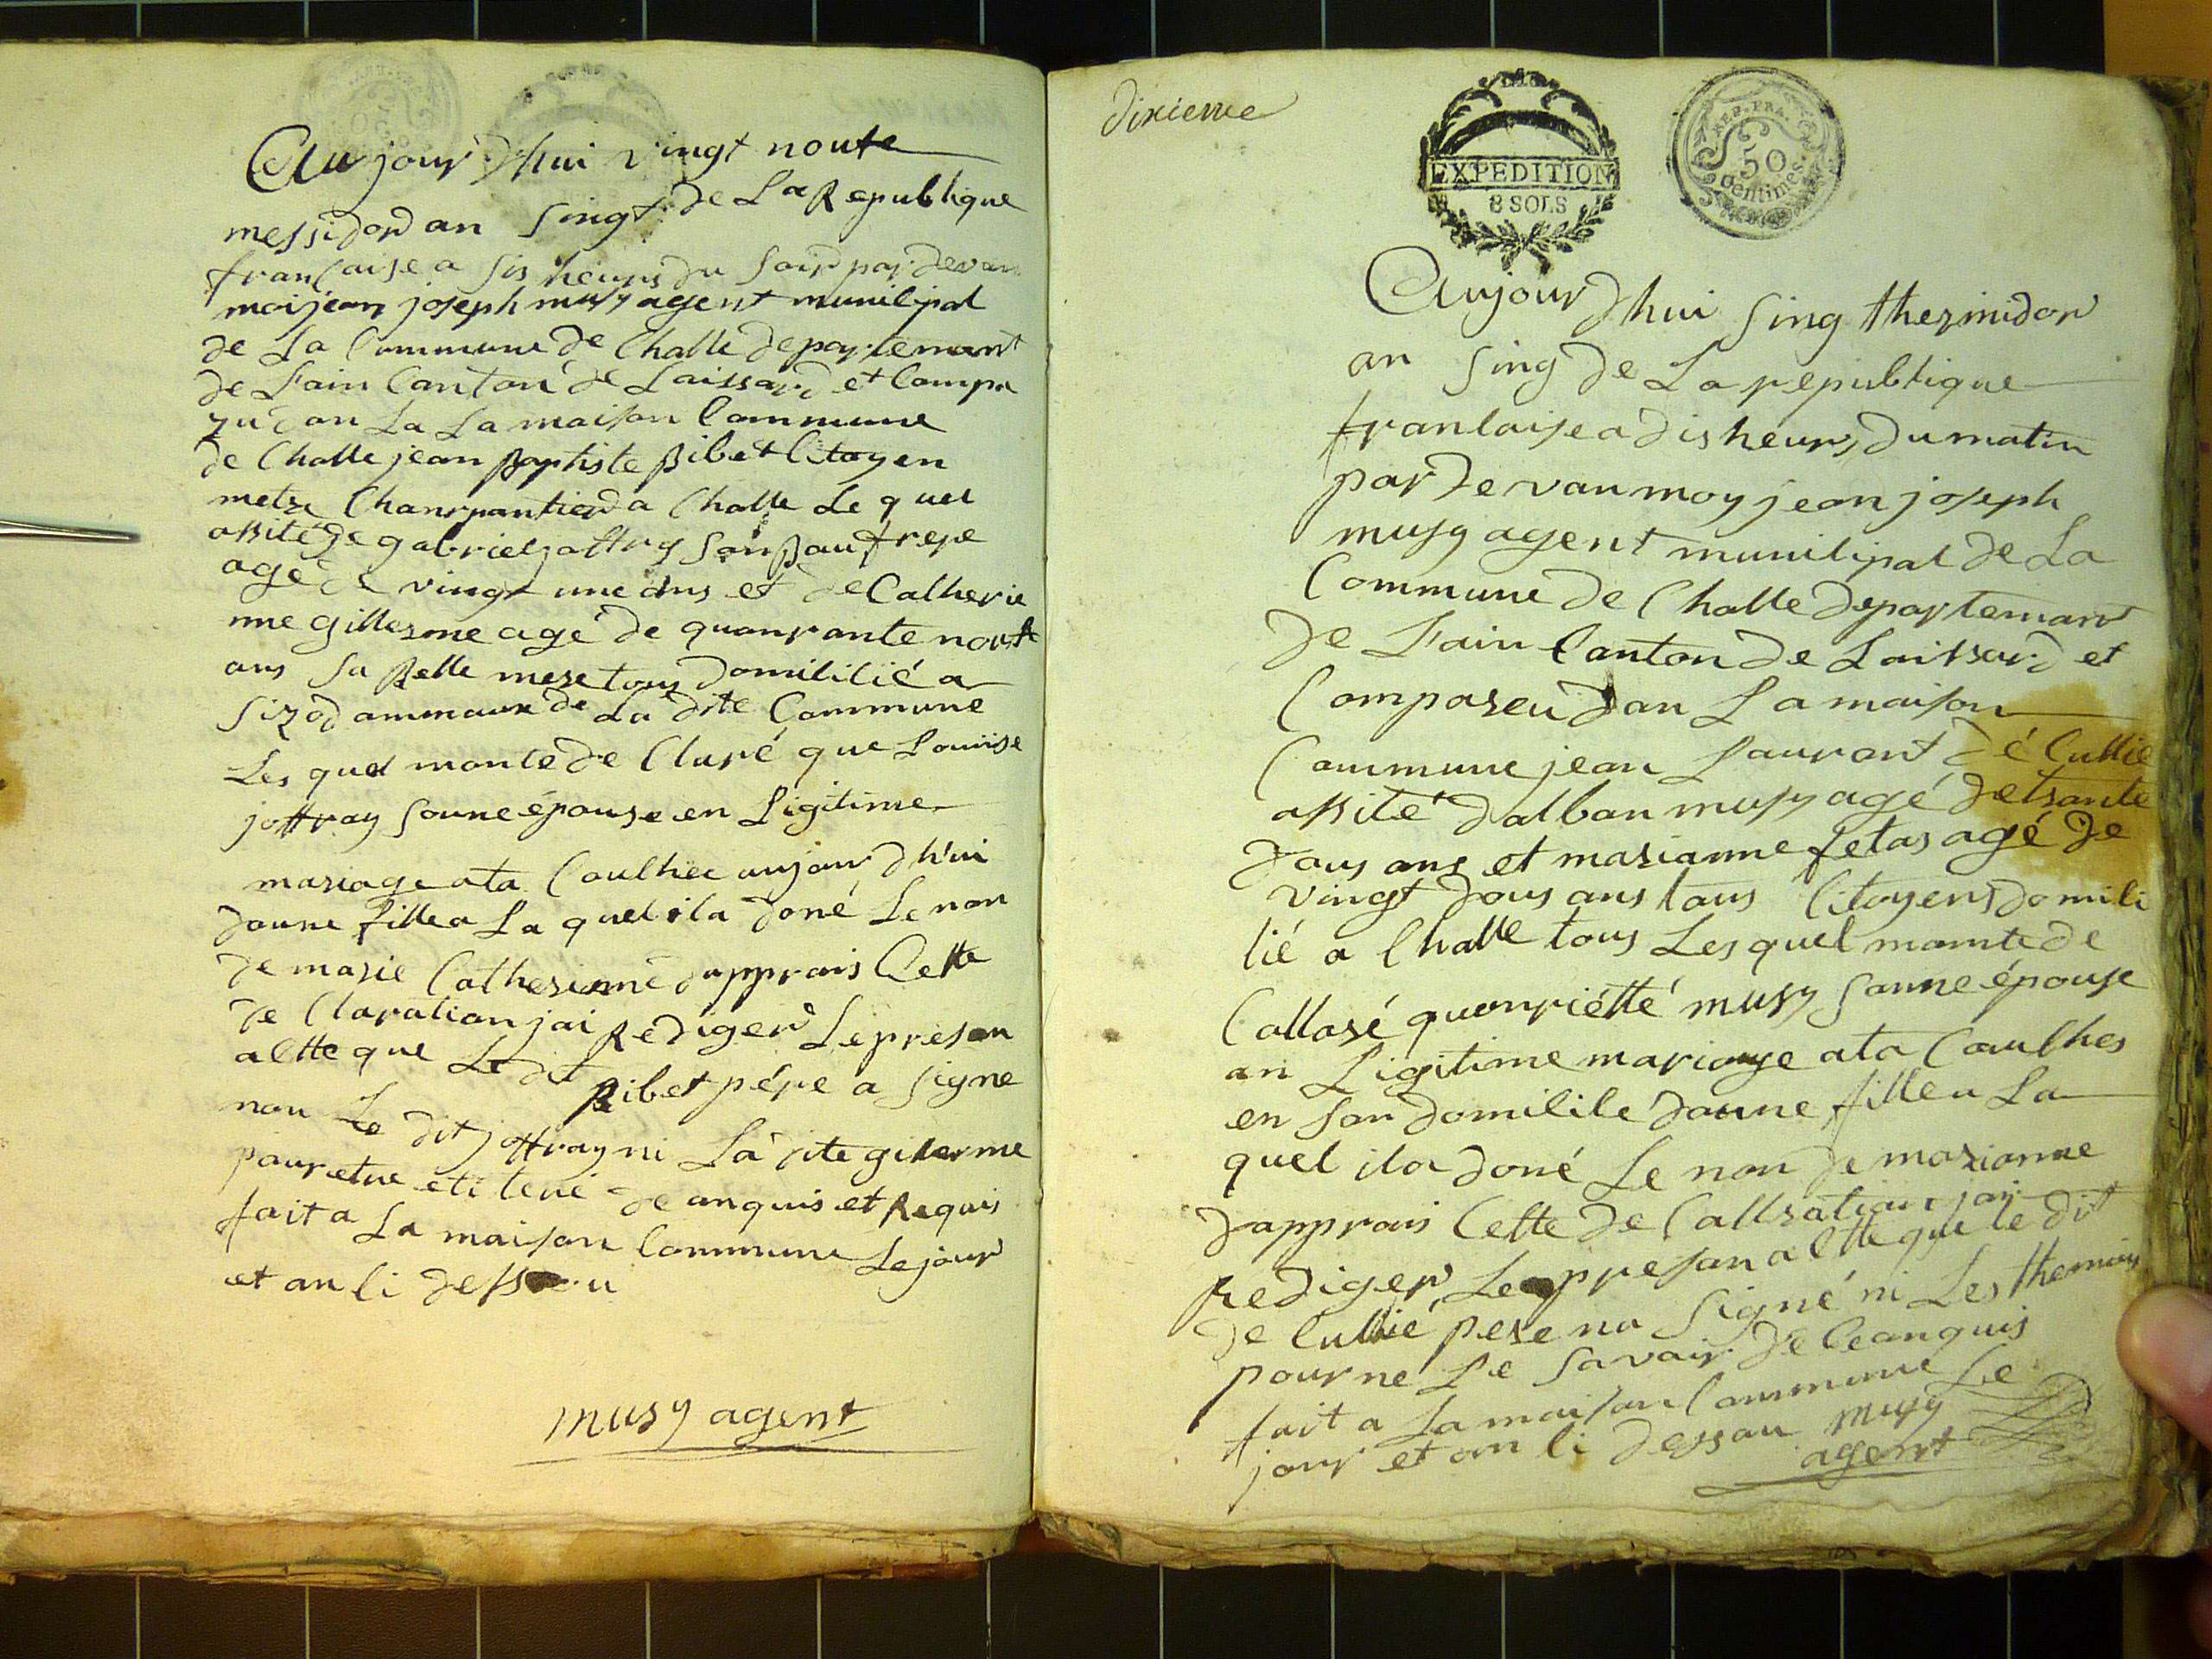 Aujourdhui vingt noute
messidor an singt de La Republique
francaise a sis heurs du soir par devan
moi jean joseph musy agent municipal
de La Commune de Challe departemant
de Lain Canton de Laissard et Compa
ru dan La La maison Commune
de Challe jean Baptiste Bibet Citoyen
metre Charpantier a Challe Le quel
assité de gabriel joffray son Baufrere
agé de vingt une ans et de Catherie
nne gillerme agé de quanrante noute
ans sa Belle mere tous domicilié a
Sizod ammaux de La dite Commune
Les quel monte de Claré que Louise
joffray sonne épouse en Ligitime
mariage ata Coulhee aujourdhui
donne fille a La quel ila doné Le non
de marie Catherinne dapprais Cette
de Claration jai Rediger Le presan
actte que Le dit Bibet pére a signe
non Le dit joffray ni La dite gilerme
pour etue eti tené de anquis et Requis
fait a La maison Commune Le jour
et an ci dessou
musy agent
dixieme
EXPEDITION
8 SOLS
REP. FRA.
50
Centimes.
Aujourdhui sing thermidor
an sing de La republique
francaise a dis heurs du matin
par devan moy jean joseph
musy agent municipal de La
Commune de Challe departemant
de Lain Canton de Laissard et
Compareu dan La maison
Commune jean Laurant dé Cullié
assité dalban musy agé de trante
dous ans et marianne fetas agé de
vingt dous ans tous Citoyens domici
lié a Challe tous Les quel monte de
Callaré quanriétté musy sonne épouse
an Ligitime mariage ata Coulhes
en son domicile donne fille a La
quel ila doné Le non de marianne
dapprais Cette de Callration jai
Rediger Le presan actte que le dit
de Cullié pere na signé ni Les themins
pour ne Le savoir de Ceanquis
fait a La maison Commune Le
jour et an ci dessau musy
agent